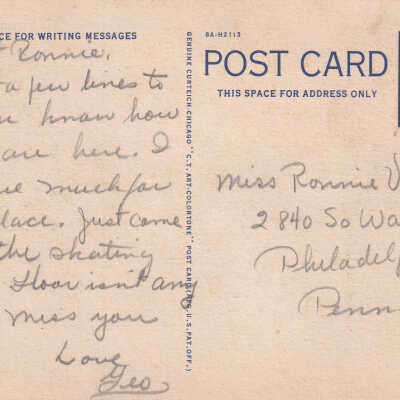 CE FOR WRITING MESSAGES
Ronnie,
a few lines to
know how
are here. I
much for
lace. Just come
the skating
floor isn't any
Miss you
Love
Geo
GENUINE CURTEICH-CHICAGO "C.T. ART-COLORTONE" POST CARD (REG. U.S. PAT. OFF.)
8A-H2113
POST CARD
THIS SPACE FOR ADDRESS ONLY
Miss Ronnie
2840 So Wa
Philadelp
Penn